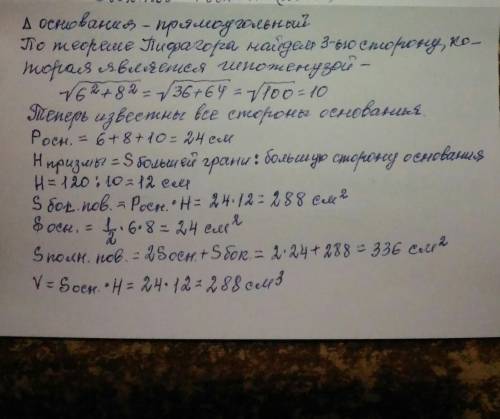 Δ основания - прямоугольный
По теореме Пифагора найдем 3-ью сторону, ко-
торая является гипотенузой -
√6²+8² = √36+64 = √100 = 10
Теперь известны все стороны основания.
Pосн. = 6+8+10 = 24 см
H призмы = S большей грани : большую сторону основания
H = 120 : 10 = 12 см
S бок. пов. = Pосн. · H = 24 · 12 = 288 см²
Sосн. = 1/2 · 6 · 8 = 24 см²
Sполн. пов. = 2Sосн + Sбок. = 2 · 24 + 288 = 336 см²
V = Sосн. · H = 24 · 12 = 288 см³